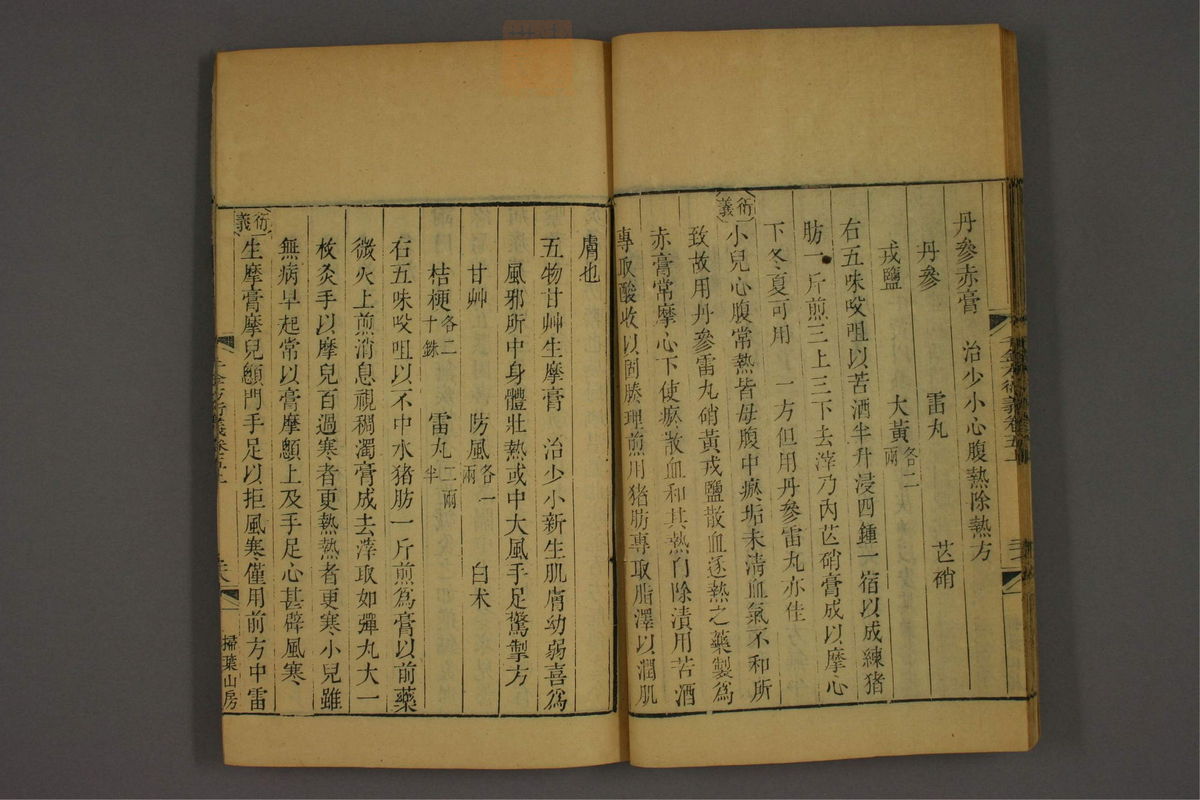 丹參赤膏　治少小心腹熱除熱方
丹參　雷丸　芒硝
戎鹽　大黃各二兩
右五味㕮咀以苦酒半升浸四鍾一宿以成練猪
肪一斤煎三上三下去滓乃內芒硝膏成以摩心
下冬夏可用　一方但用丹參雷丸亦佳
衍義
小兒心腹常熱皆母腹中瘀垢未清血氣不和所
致故用丹參雷丸硝黃戎鹽散血逐熱之藥製爲
赤膏常摩心下使瘀散血和其熱自除漬用苦酒
專取酸收以固腠理煎用猪肪專取脂澤以潤肌
膚也
五物甘艸生摩膏　治少小新生肌膚幼弱喜爲
風邪所中身體壯熱或中大風手足驚掣方
甘艸　防風各一兩　白朮
桔梗各二十銖　雷丸二兩半
右五味㕮咀以不中水猪肪一斤煎爲膏以前藥
微火上煎消息視稠濁膏成去滓取如彈丸大一
枚灸手以摩兒百過寒者更熱熱者更寒小兒雖
無病早起常以膏摩顖上及手足心甚辟風寒
衍義
生摩膏摩兒顖門手足以拒風寒僅用前方中雷
掃葉山房